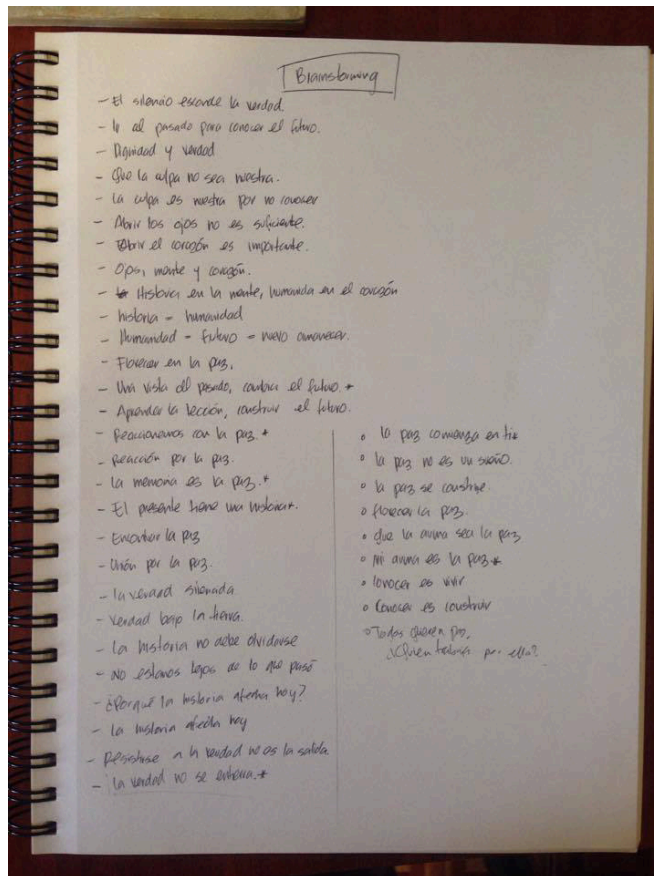 Brainstorming
- El silencio esconde la verdad
- Ir al pasado para conocer el futuro.
- Dignidad y verdad
- Que la culpa no sea nuestra.
- La culpa es nuestra por no conocer
- Abrir los ojos no es suficiente.
- Abrir el corazón es importante.
- Ojos, mente y corazón.
- Historia en la mente, humanida en el corazón
- historia = humanidad
- Humanidad = futuro = nuevo amanecer.
- Florecer en la paz.
- Una vista al pasado, cambia el futuro. *
- Aprender la lección, construir el futuro.
- Reaccionemos con la paz. *
- Reacción por la paz.
- La memoria es la paz. *
- El presente tiene una historia *.
- Encontrar la paz
- Unión por la paz.
- la verdad silenciada
- Verdad bajo la tierra.
- La historia no debe olvidarse
- No estamos lejos de lo que pasó
- ¿Porqué la historia afecta hoy?
- La historia afecta hoy
- Resistirse a la verdad no es la salida
- La verdad no se entierra. *
• la paz comienza en ti *
• la paz no es un sueño.
• la paz se construye.
• florecer la paz.
• que la arma sea la paz
• mi arma es la paz *
• Conocer es vivir
• Conocer es construir
• Todos quieren paz,
¿Quien trabaja por ella?